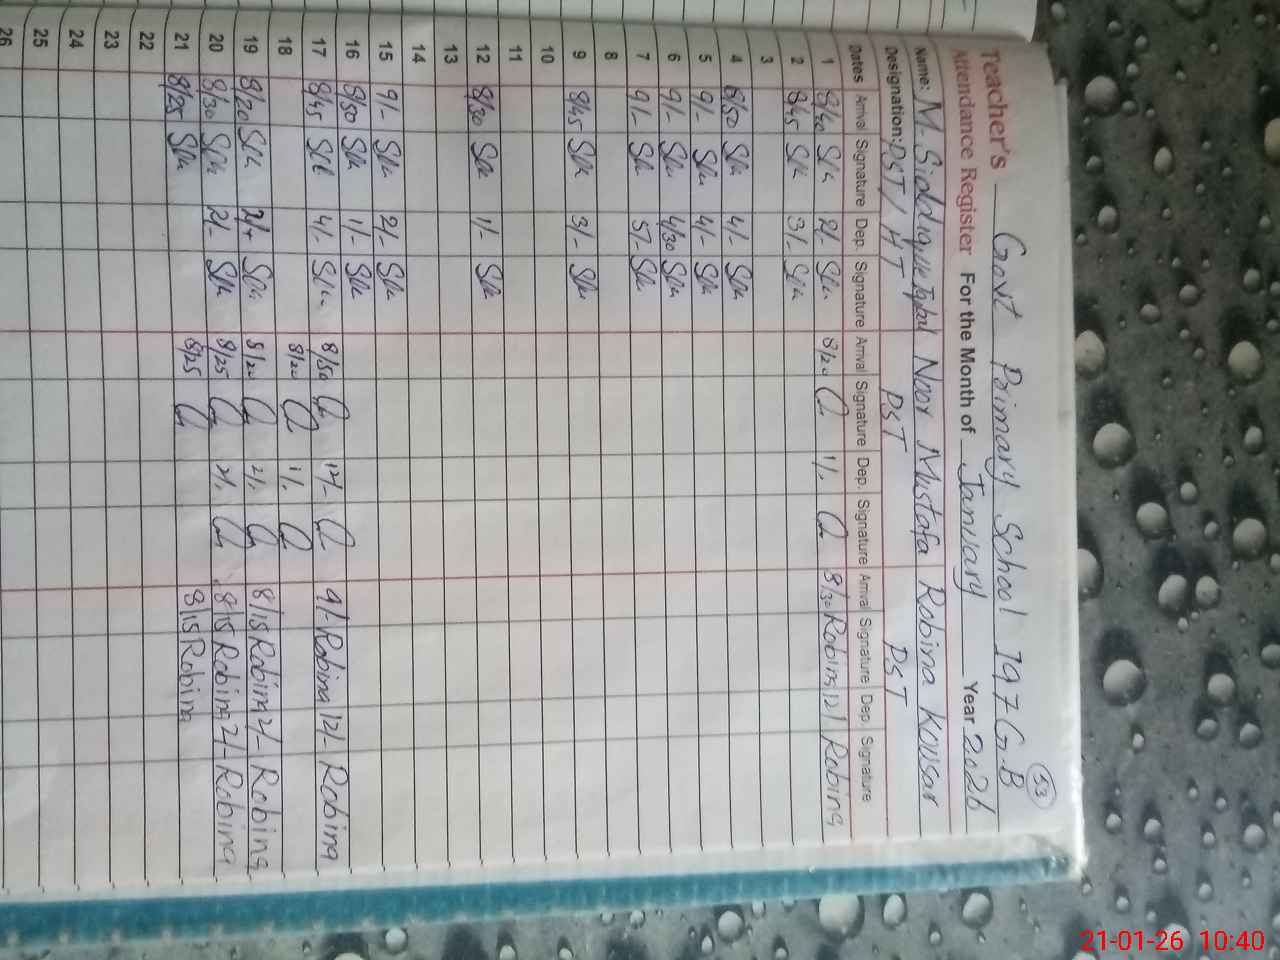 53
Teacher's Govt Primary School 197 G.B
Attendance Register For the Month of January Year 2026
Name: M. Siddique Iqbal Noor Mustafa Robina Kousar
Designation: PST / HT PST PST
Dates Arrival Signature Dep. Signature Arrival Signature Dep. Signature Arrival Signature Dep. Signature
1 8/40 2/- 8/20 1/- 8/30 Robina 12/ Robina
2 8/45 3/-
3
4 8/50 4/-
5 9/- 4/-
6 9/- 4/30
7 9/- 5/-
8
9 8/45 3/-
10
11
12 8/30 1/-
13
14
15 9/- 2/-
16 8/50 1/-
17 8/45 4/- 8/50 12/- 9/- Robina 12/- Robina
18 8/20 1/-
19 8/20 2/- 8/20 2/- 8/15 Robina 2/- Robina
20 8/30 2/- 8/25 2/- 8/15 Robina 2/- Robina
21 8/25 8/25 8/15 Robina
22
23
24
25
26
21-01-26 10:40